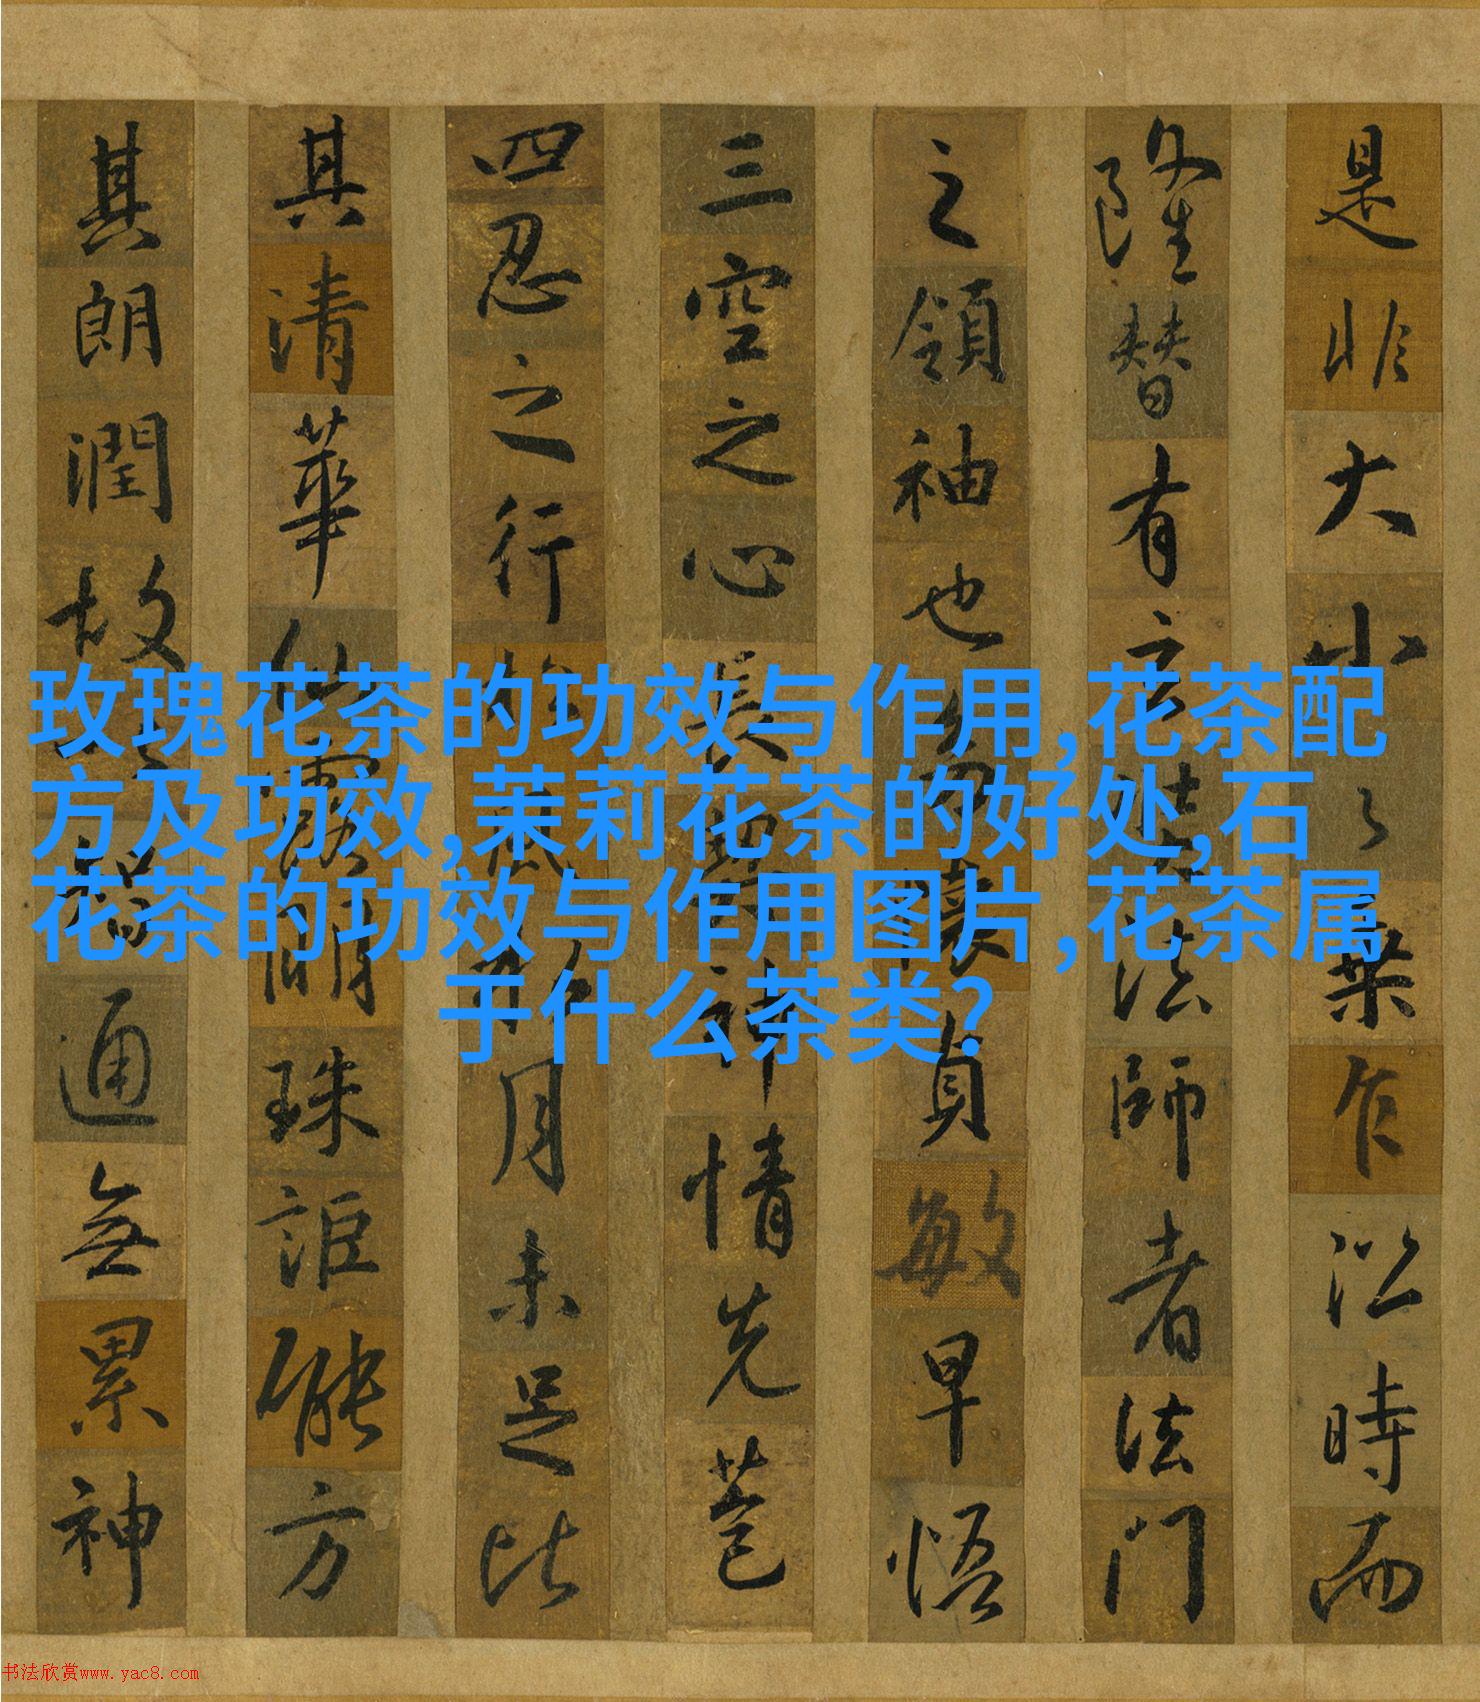 是非大小之乘乍沿時而
隆替有玄奘法師者法門
之領袖也幼懷貞敏早悟
三空之心長契神情先苞
四忍之行松風水月未足比
其清華仙露明珠詎能方
其朗潤故以智通無累神
玫瑰花茶的功效与作用,花茶配
方及功效,茉莉花茶的好处,石
花茶的功效与作用图片,花茶属
于什么茶类?
书法欣赏www.yac8.com